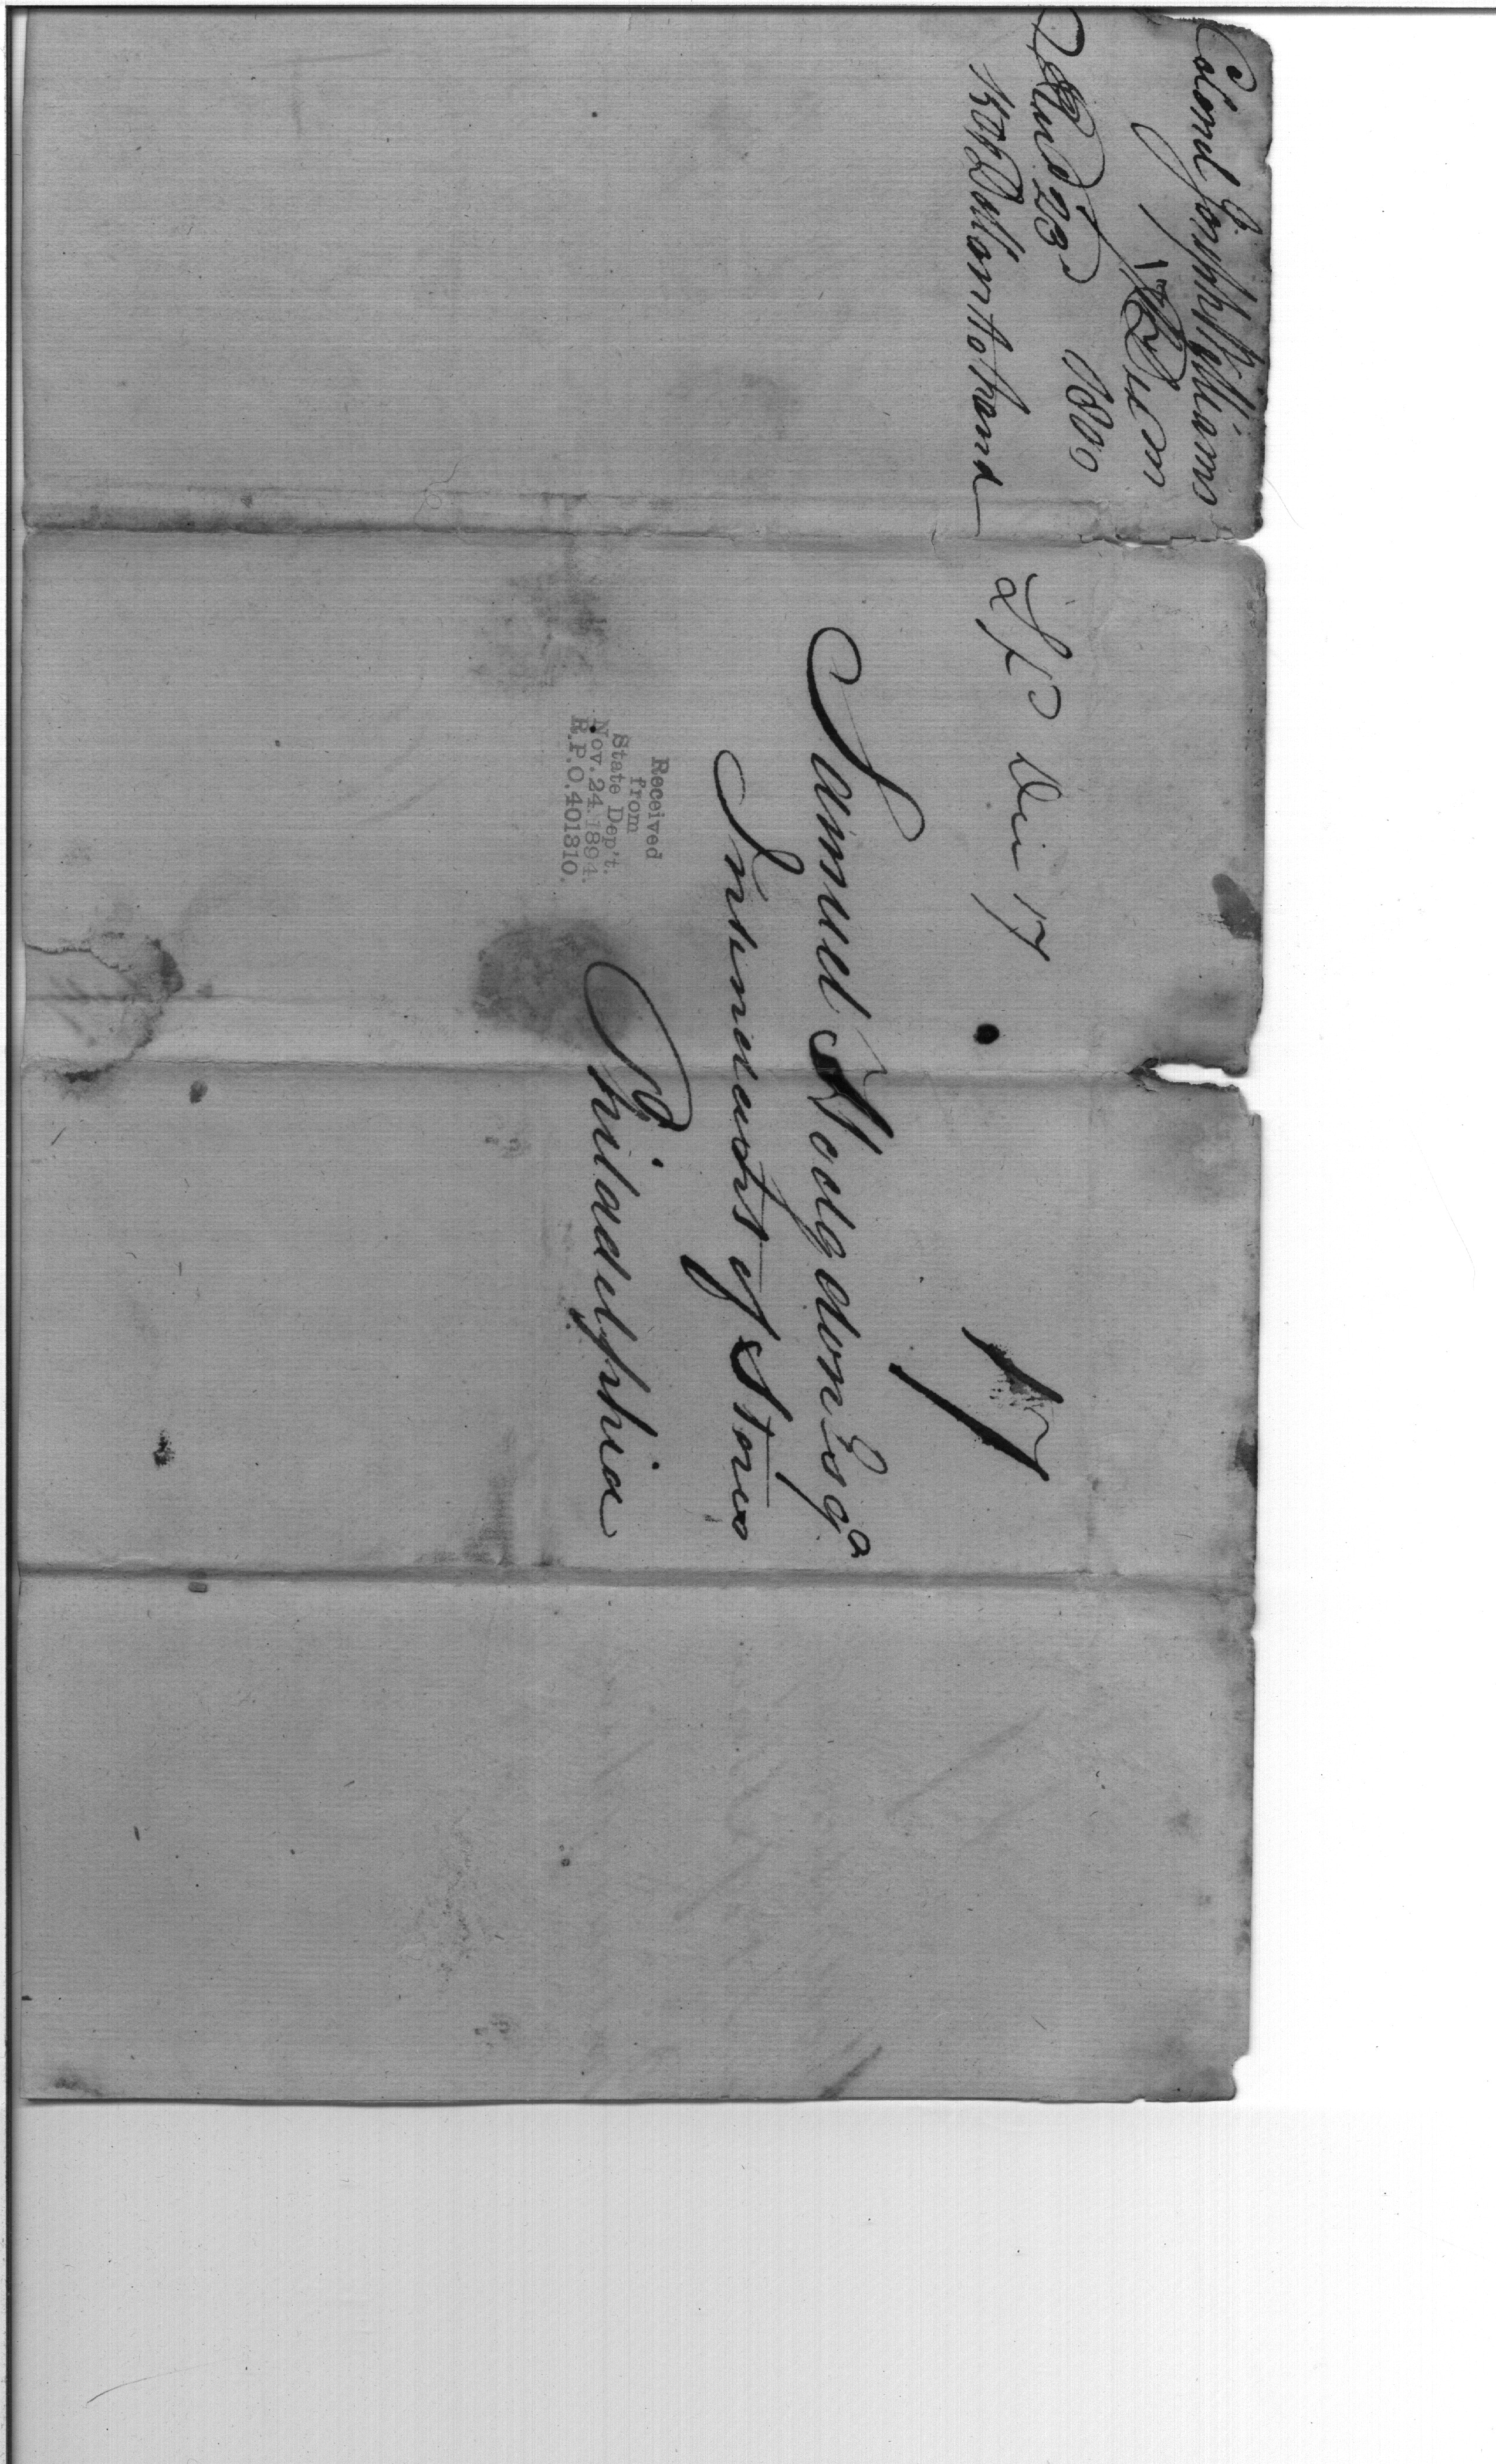 Colonel Joseph Williams
Decm
23d 1800
150 Dollars to hand
Dec 17
17
Samuel Hodgdon Esqr
Intendent of Stores
Philadelphia
Received
from
State Dep't.
Nov. 24. 1894.
R. P. O. 401810.